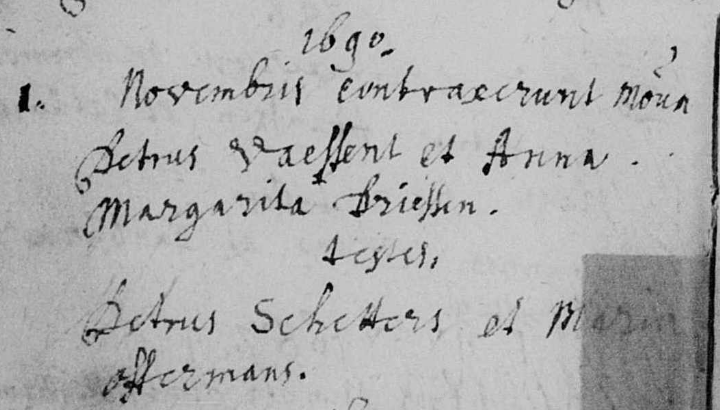 1690.
1. Novembris contraxerunt mōua
Petrus Vaessent et Anna.
Margarita Driessen.
testes,
Petrus Schetters et Maria
offermans.